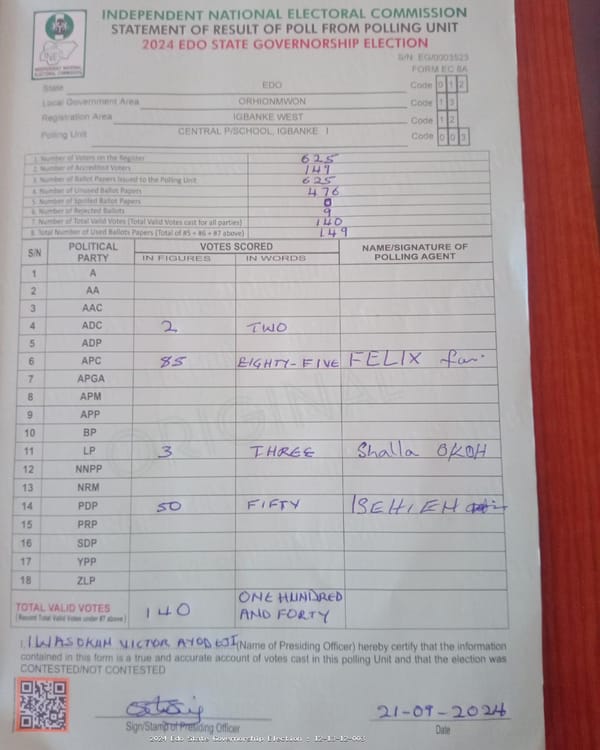 INDEPENDENT NATIONAL ELECTORAL COMMISSION
STATEMENT OF RESULT OF POLL FROM POLLING UNIT
2024 EDO STATE GOVERNORSHIP ELECTION
INDEPENDENT NATIONAL ELECTORAL COMMISSION
S/N: EG/0003523
FORM EC 8A
State EDO Code 0 1 2
Local Government Area ORHIONMWON Code 1 3
Registration Area IGBANKE WEST Code 1 2
Polling Unit CENTRAL P/SCHOOL, IGBANKE I Code 0 0 3
1. Number of Voters on the Register 625
2. Number of Accredited Voters 149
3. Number of Ballot Papers Issued to the Polling Unit 625
4. Number of Unused Ballot Papers 476
5. Number of Spoiled Ballot Papers 0
6. Number of Rejected Ballots 9
7. Number of Total Valid Votes (Total Valid Votes cast for all parties) 140
8. Total Number of Used Ballots Papers (Total of #5 + #6 + #7 above) 149
S/N POLITICAL PARTY VOTES SCORED NAME/SIGNATURE OF POLLING AGENT
IN FIGURES IN WORDS
1 A
2 AA
3 AAC
4 ADC 2 TWO
5 ADP
6 APC 85 EIGHTY-FIVE FELIX
7 APGA
8 APM
9 APP
10 BP
11 LP 3 THREE Shalla OKOH
12 NNPP
13 NRM
14 PDP 50 FIFTY
15 PRP
16 SDP
17 YPP
18 ZLP
ORIGINAL
TOTAL VALID VOTES 140 ONE HUNDRED AND FORTY
(Record Total Valid Votes under #7 above)
I, IWASOKUN VICTOR AYODEJI (Name of Presiding Officer) hereby certify that the information
contained in this form is a true and accurate account of votes cast in this polling Unit and that the election was
CONTESTED/NOT CONTESTED
21-09-2024
Sign/Stamp of Presiding Officer Date
2024 Edo State Governorship Election : 12-13-12-003